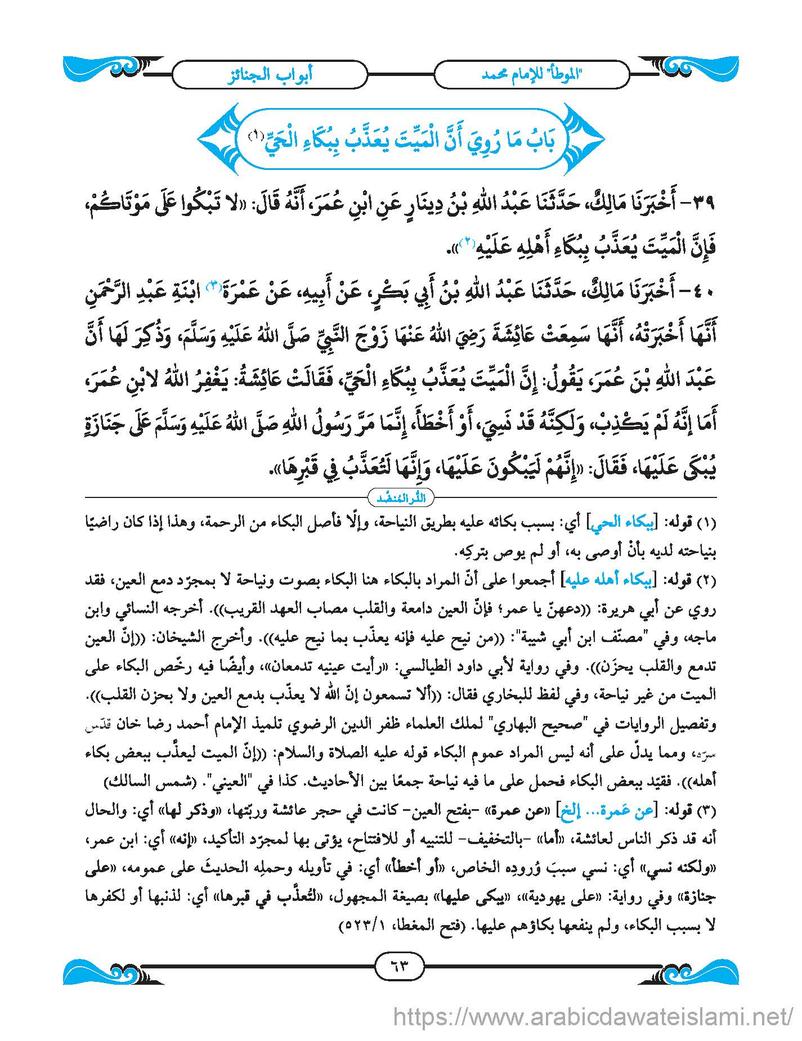 "الموطأ" للإمام محمد
أبواب الجنائز
بَابُ مَا رُوِيَ أَنَّ الْمَيِّتَ يُعَذَّبُ بِبُكَاءِ الْحَيِّ(١)
٣٩- أَخْبَرَنَا مَالِكٌ، حَدَّثَنَا عَبْدُ اللهِ بْنُ دِينَارٍ عَنِ ابْنِ عُمَرَ، أَنَّهُ قَالَ: «لا تَبْكُوا عَلَى مَوْتَاكُمْ،
فَإِنَّ الْمَيِّتَ يُعَذَّبُ بِبُكَاءِ أَهْلِهِ عَلَيْهِ(٢)».
٤٠- أَخْبَرَنَا مَالِكٌ، حَدَّثَنَا عَبْدُ اللهِ بْنُ أَبِي بَكْرٍ، عَنْ أَبِيهِ، عَنْ عَمْرَةَ(٣) ابْنَةِ عَبْدِ الرَّحْمَنِ
أَنَّهَا أَخْبَرَتْهُ، أَنَّهَا سَمِعَتْ عَائِشَةَ رَضِيَ اللهُ عَنْهَا زَوْجَ النَّبِيِّ صَلَّى اللهُ عَلَيْهِ وَسَلَّمَ، وَذُكِرَ لَهَا أَنَّ
عَبْدَ اللهِ بْنَ عُمَرَ، يَقُولُ: إِنَّ الْمَيِّتَ يُعَذَّبُ بِبُكَاءِ الْحَيِّ، فَقَالَتْ عَائِشَةُ: يَغْفِرُ اللهُ لابْنِ عُمَرَ،
أَمَا إِنَّهُ لَمْ يَكْذِبْ، وَلَكِنَّهُ قَدْ نَسِيَ، أَوْ أَخْطَأَ، إِنَّمَا مَرَّ رَسُولُ اللهِ صَلَّى اللهُ عَلَيْهِ وَسَلَّمَ عَلَى جَنَازَةٍ
يُبْكَى عَلَيْهَا، فَقَالَ: «إِنَّهُمْ لَيَبْكُونَ عَلَيْهَا، وَإِنَّهَا لَتُعَذَّبُ فِي قَبْرِهَا».
الدُّر المُنضَّد
(١) قوله: [ببكاء الحي] أي: بسبب بكائه عليه بطريق النياحة، وإلّا فأصل البكاء من الرحمة، وهذا إذا كان راضيًا
بنياحته لديه بأنْ أوصى به، أو لم يوص بتركِه.
(٢) قوله: [ببكاء أهله عليه] أجمعوا على أنّ المراد بالبكاء هنا البكاء بصوت ونياحة لا بمجرّد دمع العين، فقد
روي عن أبي هريرة: ((دعهنّ يا عمر؛ فإنّ العين دامعة والقلب مصاب العهد القريب)). أخرجه النسائي وابن
ماجه، وفي "مصنّف ابن أبي شيبة": ((من نيح عليه فإنه يعذّب بما نيح عليه)). وأخرج الشيخان: ((إنّ العين
تدمع والقلب يحزن)). وفي رواية لأبي داود الطيالسي: «رأيت عينيه تدمعان»، وأيضًا فيه رخّص البكاء على
الميت من غير نياحة، وفي لفظ للبخاري فقال: ((ألا تسمعون إنّ الله لا يعذّب بدمع العين ولا بحزن القلب)).
وتفصيل الروايات في "صحيح البهاري" لملك العلماء ظفر الدين الرضوي تلميذ الإمام أحمد رضا خان قدّس
سرّه، ومما يدلّ على أنه ليس المراد عموم البكاء قوله عليه الصلاة والسلام: ((إنّ الميت ليعذَّب ببعض بكاء
أهله)). فقيّد ببعض البكاء فحمل على ما فيه نياحة جمعًا بين الأحاديث. كذا في "العيني". (شمس السالك)
(٣) قوله: [عن عَمرة... إلخ] «عن عمرة» -بفتح العين- كانت في حجر عائشة وربّتها، «وذكر لها» أي: والحال
أنه قد ذكر الناس لعائشة، «أما» -بالتخفيف- للتنبيه أو للافتتاح، يؤتى بها لمجرّد التأكيد، «إنه» أي: ابن عمر،
«ولكنه نسي» أي: نسي سببَ وُرودِه الخاص، «أو أخطأ» أي: في تأويله وحملِه الحديثَ على عمومه، «على
جنازة» وفي رواية: «على يهودية»، «يبكى عليها» بصيغة المجهول، «لتُعذَّب في قبرها» أي: لذنبها أو لكفرها
لا بسبب البكاء، ولم ينفعها بكاؤهم عليها. (فتح المغطا، ٥٢٣/١)
٦٣
https://www.arabicdawateislami.net/